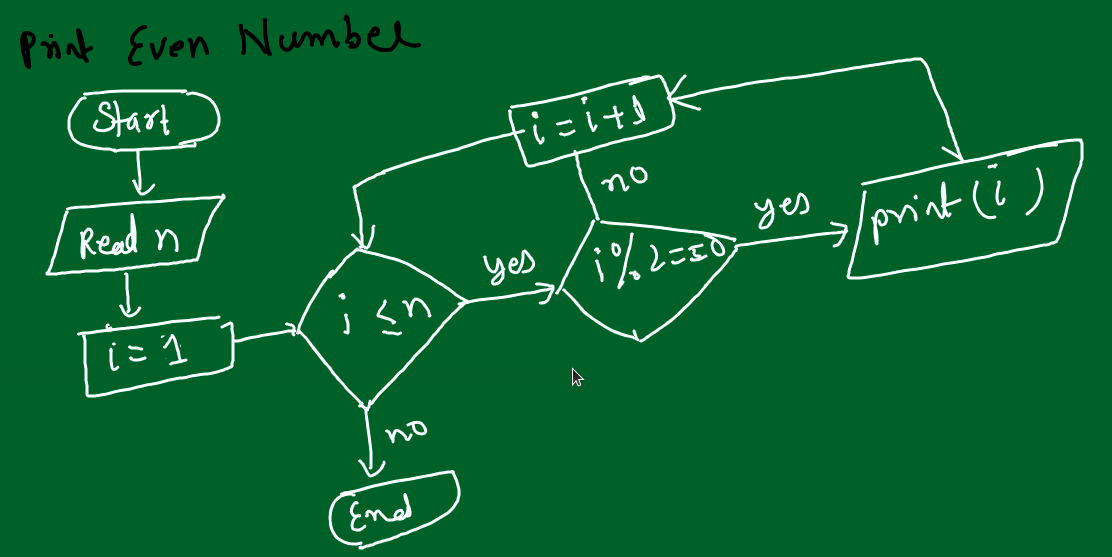 Print Even Number
Start
Read n
i = 1
i ≤ n
yes
no
End
i%2==0
yes
no
print(i)
i = i+1